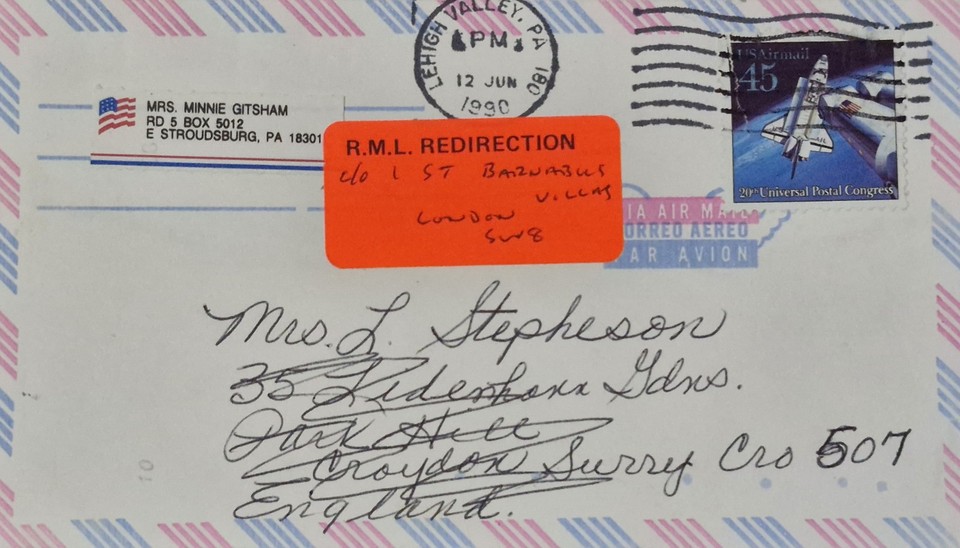 LEHIGH VALLEY, PA 180
PM
12 JUN
1990
USAirmail
45
20th Universal Postal Congress
MRS. MINNIE GITSHAM
RD 5 BOX 5012
E STROUDSBURG, PA 18301
R.M.L. REDIRECTION
c/o 1 ST BARNABUS
VILLAS
LONDON
SW8
IA AIR MAIL
ORREO AEREO
PAR AVION
Mrs. L. Stepheson
35 Gdns.
Park Hill
Croydon Surry Cro 507
England.
10